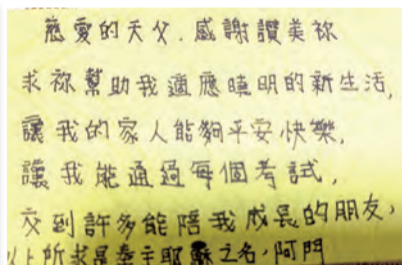 慈愛的天父．感謝讚美祢
求祢幫助我適應曉明的新生活，
讓我的家人能夠平安快樂，
讓我能通過每個考試，
交到許多能陪我成長的朋友，
以上所求是奉主耶穌之名，阿門